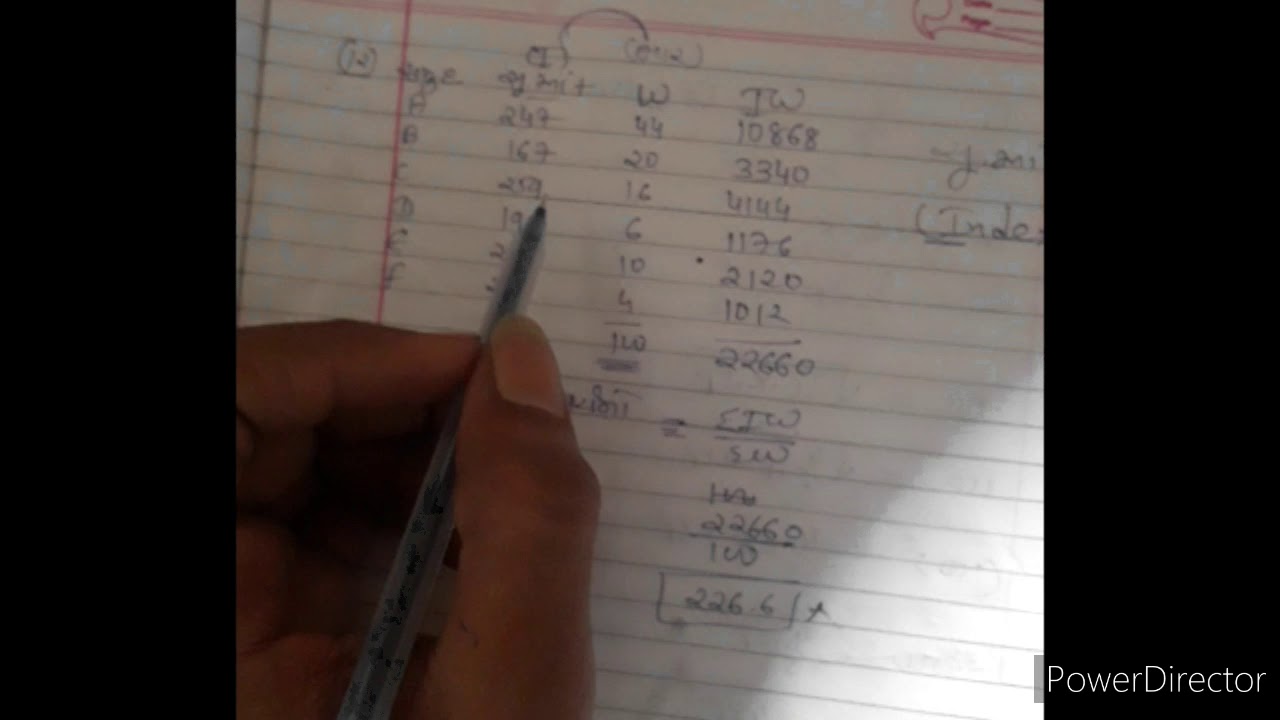 (12) સમૂહ સૂ.આંક W IW
(I) (ભાર)
A 247 44 10868
B 167 20 3340
C 259 16 4144
D 19 6 1176
E 2 10 2120
F 4 1012
100 22660
= ΣIW
ΣW
22660
100
226.6
(Index
PowerDirector